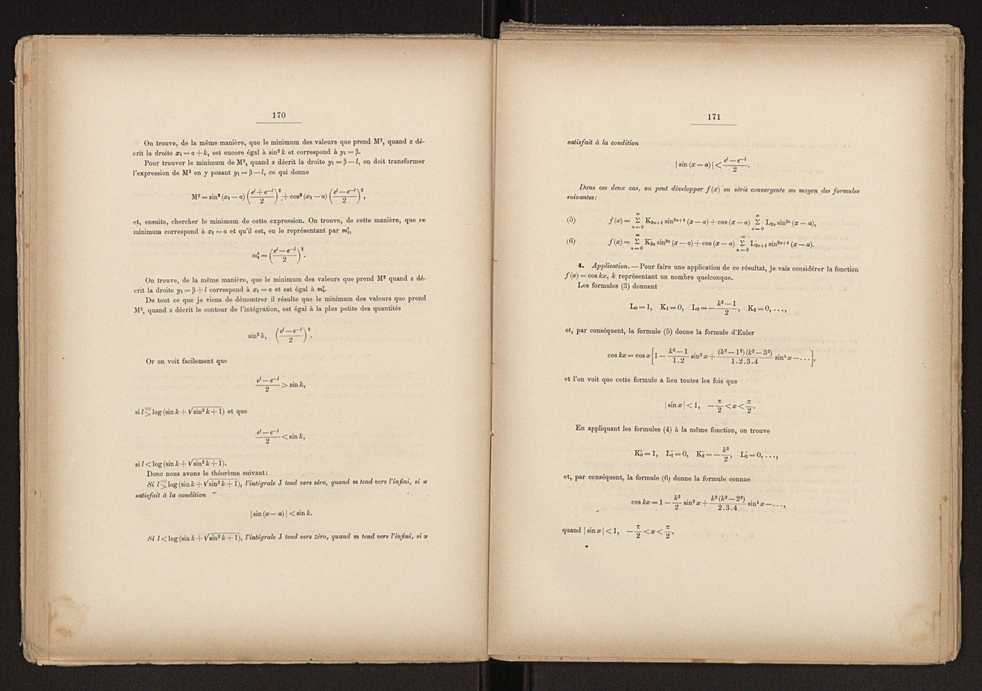 170
On trouve, de la même manière, que le minimum des valeurs que prend M², quand z dé-
crit la droite x₁ = a + k, est encore égal à sin² k et correspond à y₁ = β.
Pour trouver le minimum de M², quand z décrit la droite y₁ = β — l, on doit transformer
l'expression de M² en y posant y₁ = β — l, ce qui donne
M² = sin² (x₁ — a) ( (eˡ + e⁻ˡ) / 2 )² + cos² (x₁ — a) ( (eˡ — e⁻ˡ) / 2 )²,
et, ensuite, chercher le minimum de cette expression. On trouve, de cette manière, que ce
minimum correspond à x₁ = a et qu'il est, en le représentant par
= ( (eˡ — e⁻ˡ) / 2 )².
On trouve, de la même manière, que le minimum des valeurs que prend M² quand z dé-
crit la droite y₁ = β + l correspond à x₁ = a et est égal à
De tout ce que je viens de démontrer il résulte que le minimum des valeurs que prend
M², quand z décrit le contour de l'intégration, est égal à la plus petite des quantités
sin² k, ( (eˡ — e⁻ˡ) / 2 )².
Or on voit facilement que
(eˡ — e⁻ˡ) / 2 > sin k,
si l ≧ log (sin k + √(sin² k + 1)) et que
(eˡ — e⁻ˡ) / 2 < sin k,
si l < log (sin k + √(sin² k + 1)).
Donc nous avons le théorème suivant:
Si l ≧ log (sin k + √(sin² k + 1)), l'intégrale J tend vers zéro, quand m tend vers l'infini, si x
satisfait à la condition
| sin (x — a) | < sin k.
Si l < log (sin k + √(sin² k + 1)), l'intégrale J tend vers zéro, quand m tend vers l'infini, si x
171
satisfait à la condition
| sin (x — a) | < (eˡ — e⁻ˡ) / 2.
Dans ces deux cas, on peut développer f (x) en série convergente au moyen des formules
suivantes:
(5) f (x) = Σ K₂ₙ₊₁ sin²ⁿ⁺¹ (x — a) + cos (x — a) Σ L₂ₙ sin²ⁿ (x — a),
(6) f (x) = Σ K₂ₙ sin²ⁿ (x — a) + cos (x — a) Σ L₂ₙ₊₁ sin²ⁿ⁺¹ (x — a).
4. Application. — Pour faire une application de ce résultat, je vais considérer la fonction
f (x) = cos kx, k représentant un nombre quelconque.
Les formules (3) donnent
L₀ = 1, K₁ = 0, L₂ = — (k² — 1) / 2, K₃ = 0, ...,
et, par conséquent, la formule (5) donne la formule d'Euler
cos kx = cos x [ 1 — (k² — 1) / 1.2 sin² x + (k² — 1²) (k² — 3²) / 1.2.3.4 sin⁴ x — ... ],
et l'on voit que cette formule a lieu toutes les fois que
| sin x | < 1, — π/2 < x < π/2.
En appliquant les formules (4) à la même fonction, on trouve
K₀ = 1, L₁ = 0, K₂ = — k²/2, L₃ = 0, ...,
et, par conséquent, la formule (6) donne la formule connue
cos kx = 1 — k²/2 sin² x + k² (k² — 2²) / 2.3.4 sin⁴ x — ...,
quand | sin x | < 1, — π/2 < x < π/2.